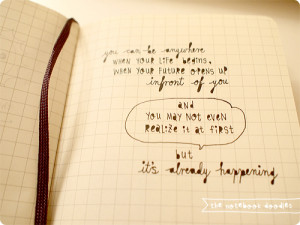 you can be anywhere
WHEN YOUR LIFE begins,
WHEN YOUR FUTURE OPENS UP
infront of you
and
YOU MAY NOT EVEN
REALIZE it AT FIRST
but
it's already happening
the notebook doodles